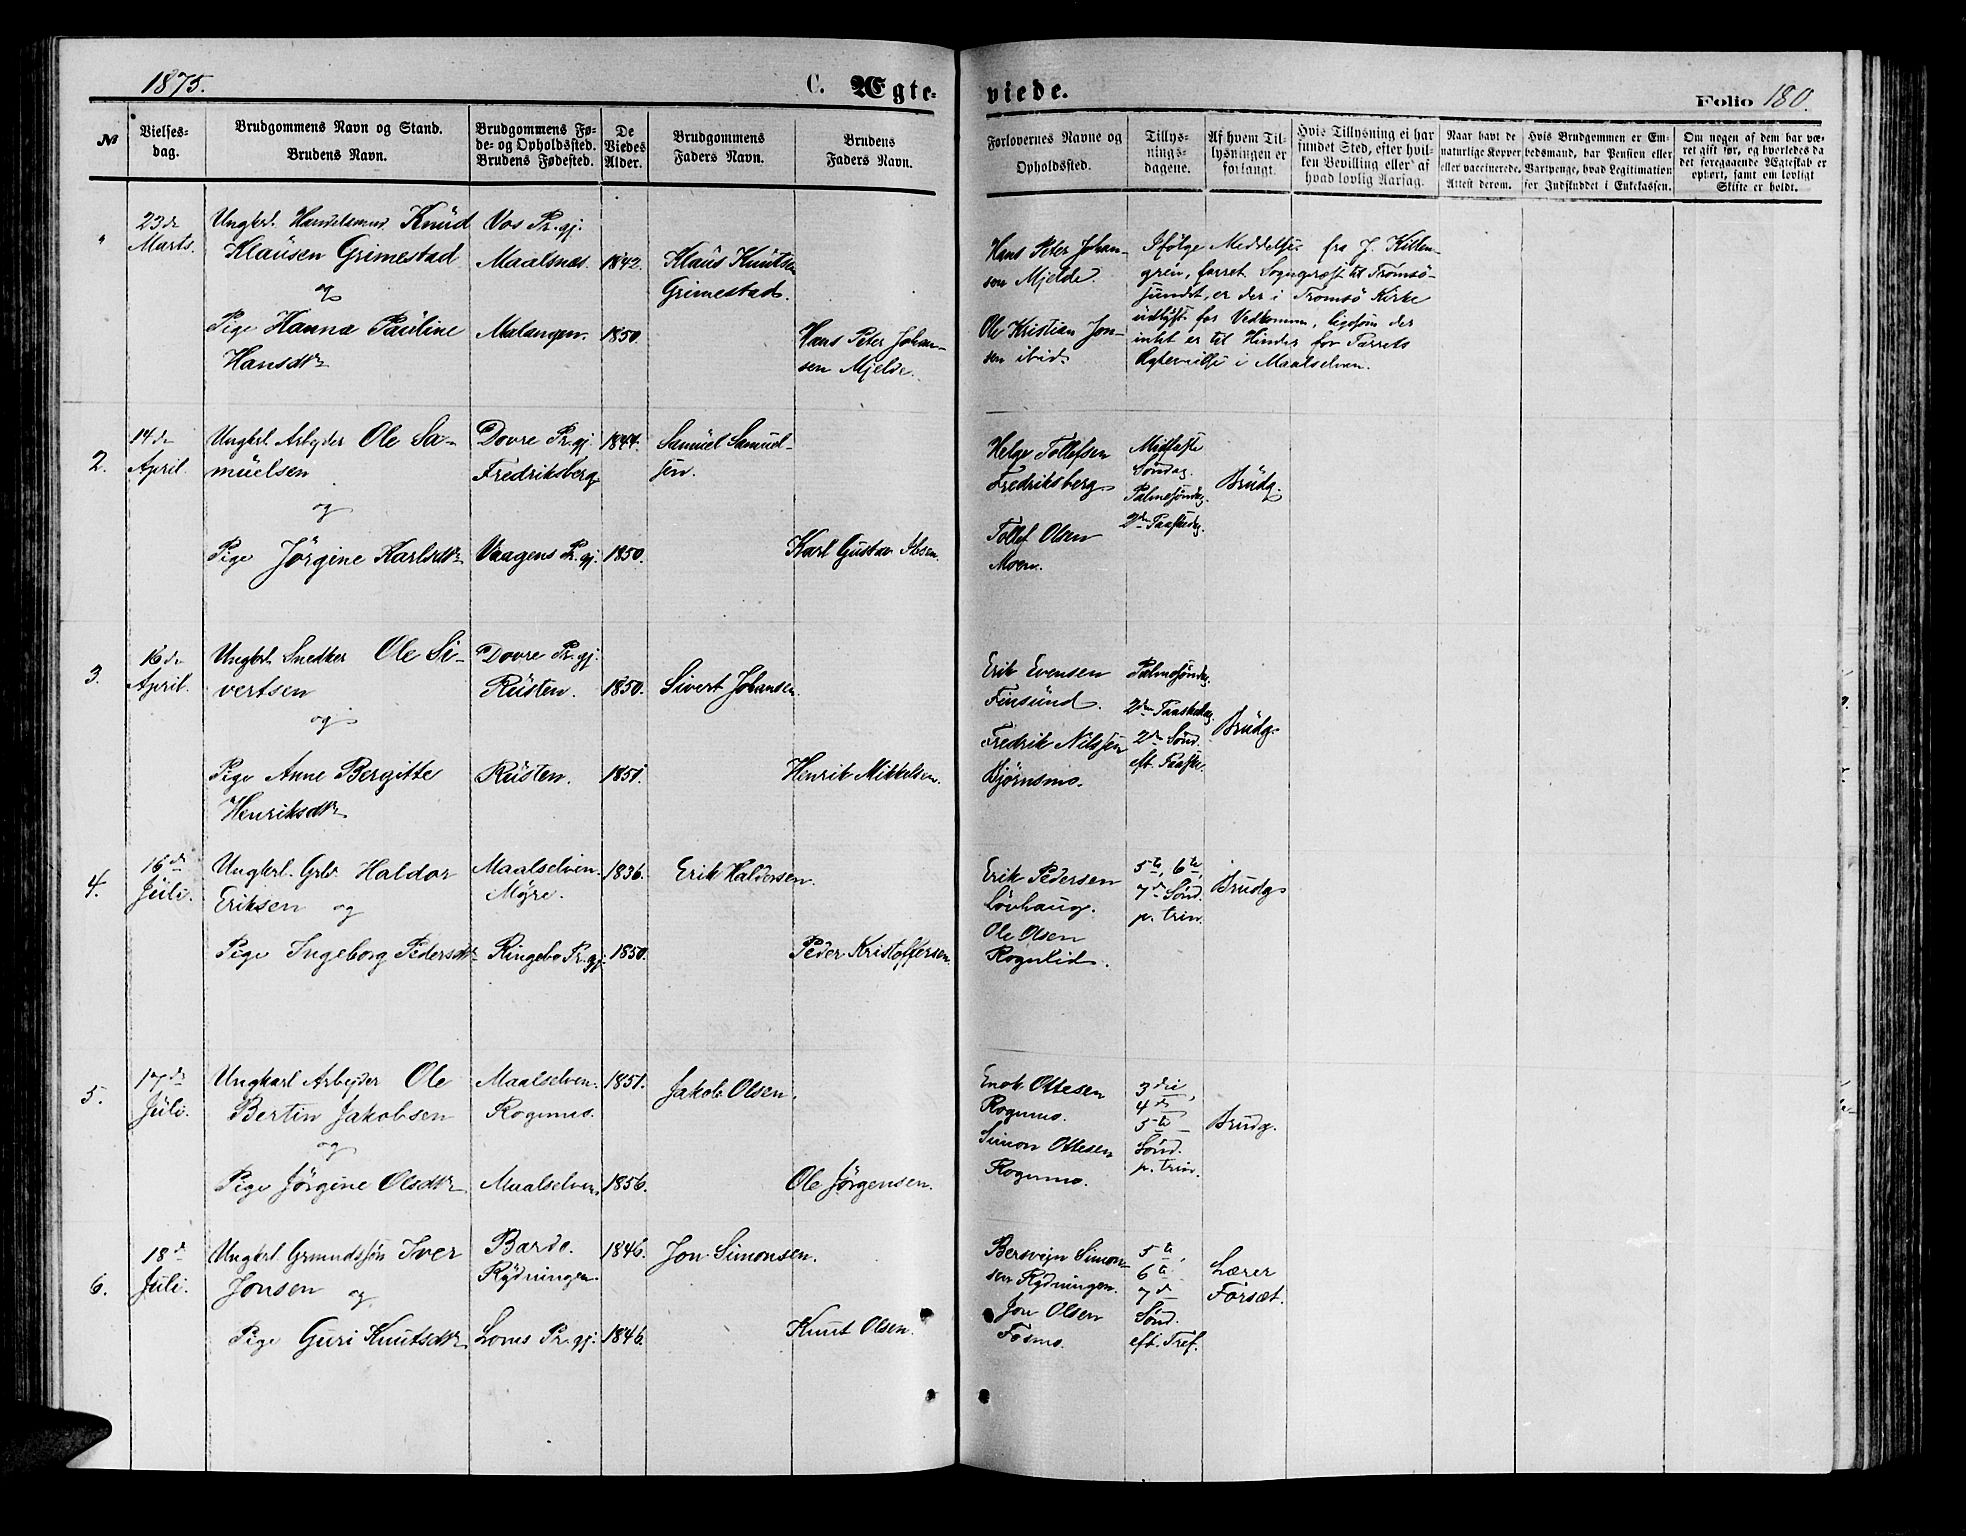 1875.
C. Ægte-
viede.
Folio 180.
№
Vielses-
dag.
Brudgommens Navn og Stand.
Brudens Navn.
Brudgommens Fø-
de- og Opholdssted.
Brudens Fødested.
De
Viedes
Alder.
Brudgommens
Faders Navn.
Brudens
Faders Navn.
Forlovernes Navne og
Opholdssted.
Tillys-
nings-
dagene.
Af hvem Til-
lysningen er
forlangt.
Hvis Tillysning ei har
fundet Sted, efter hvil-
ken Bevilling eller af
hvad lovlig Aarsag.
Naar havt de
naturlige Kopper
eller vaccinerede.
Attest derom.
Hvis Brudgommen er Em-
bedsmand, har Pension eller
Vartpenge, hvad Legitimation
for Indskuddet i Enkekassen.
Om nogen af dem har væ-
ret gift før, og hvorledes da
det foregaaende Ægteskab er
ophørt, samt om lovligt
Skifte er holdt.
"
23de
Marts.
Ungkrl. Handelsmand Knud
Klausen Grimestad
og
Pige Hanna Pauline
Hansdtr
Vos Pr.gj.
Maalsnæs.
Malangen.
1842.
1850.
Klaus Knutsen
Grimestad.
Hans Peter Johan-
sen Mjelde.
Hans Peter Johan-
sen Mjelde.
Ole Kristian Jon-
sen ibid.
Ifølge Meddelse fra J. Killen-
gren, forret. Sogneprest til Tromsö-
sundet, er der i Tromsö Kirke
udlyst for Vedkommen, ligesom der
intet er til Hinder for Parrets
Ægtevielse i Maalselven.
2.
14de
April.
Ungkrl. Arbejder Ole Sa-
muelsen
og
Pige Jörgine Karlsdtr
Dovre Pr.gj.
Fredriksberg
Vaagens Pr.gj.
1844.
1850.
Samuel Samuel-
sen.
Karl Gustav Ibsen.
Helge Tollefsen
Fredriksberg
Tollef Olsen
Moen.
Midfaste
Söndag.
Palmesöndag.
2den Paaskedag.
Brudg.
3.
16de
April.
Ungkrl. Snedker Ole Si-
vertsen
og
Pige Anne Bergitte
Henriksdtr
Dovre Pr.gj.
Rusten.
Rusten.
1850.
1851.
Sivert Johansen.
Henrik Mikkelsen.
Erik Evensen
Finsund.
Fredrik Nilssen
Björnsmo.
Palmesöndag.
2den Paaskedag.
2den Sönd.
eft. Paaske.
Brudg.
4.
16de
Juli.
Ungkrl. Grbr Haldor
Eriksen og
Pige Ingeborg Pedersdtr
Maalselven.
Myre.
Ringebo Pr.gj.
1836.
1850.
Erik Haldorsen.
Peder Kristoffersen.
Erik Pedersen
Lövhaug.
Ole Olsen
Rognlid.
5te, 6te,
7de Sönd.
p. trin.
Brudg.
5.
17de
Juli.
Ungkarl Arbejder Ole
Bertin Jakobsen
og
Pige Jörgine Olsdtr
Maalselven.
Rognmo.
Maalselven.
1851.
1856.
Jakob Olsen.
Ole Jörgensen.
Enok Ottesen
Rognmo.
Simon Ottesen
Rognmo.
3die,
4de
5te
Sönd.
p. trin.
Brudg.
6.
18de
Juli.
Ungkrl. Grmndssön Iver
Jonsen og
Pige Guri Knutsdtr
Bardo.
Rydningen.
Loms Pr.gj.
1846.
1846.
Jon Simonsen.
Knut Olsen.
Bersvejn Simon-
sen Rydningen.
Jon Olsen
Fosmo.
5te,
6te
7de
Sönd.
eft. Tref.
Lærer
Forsæt.